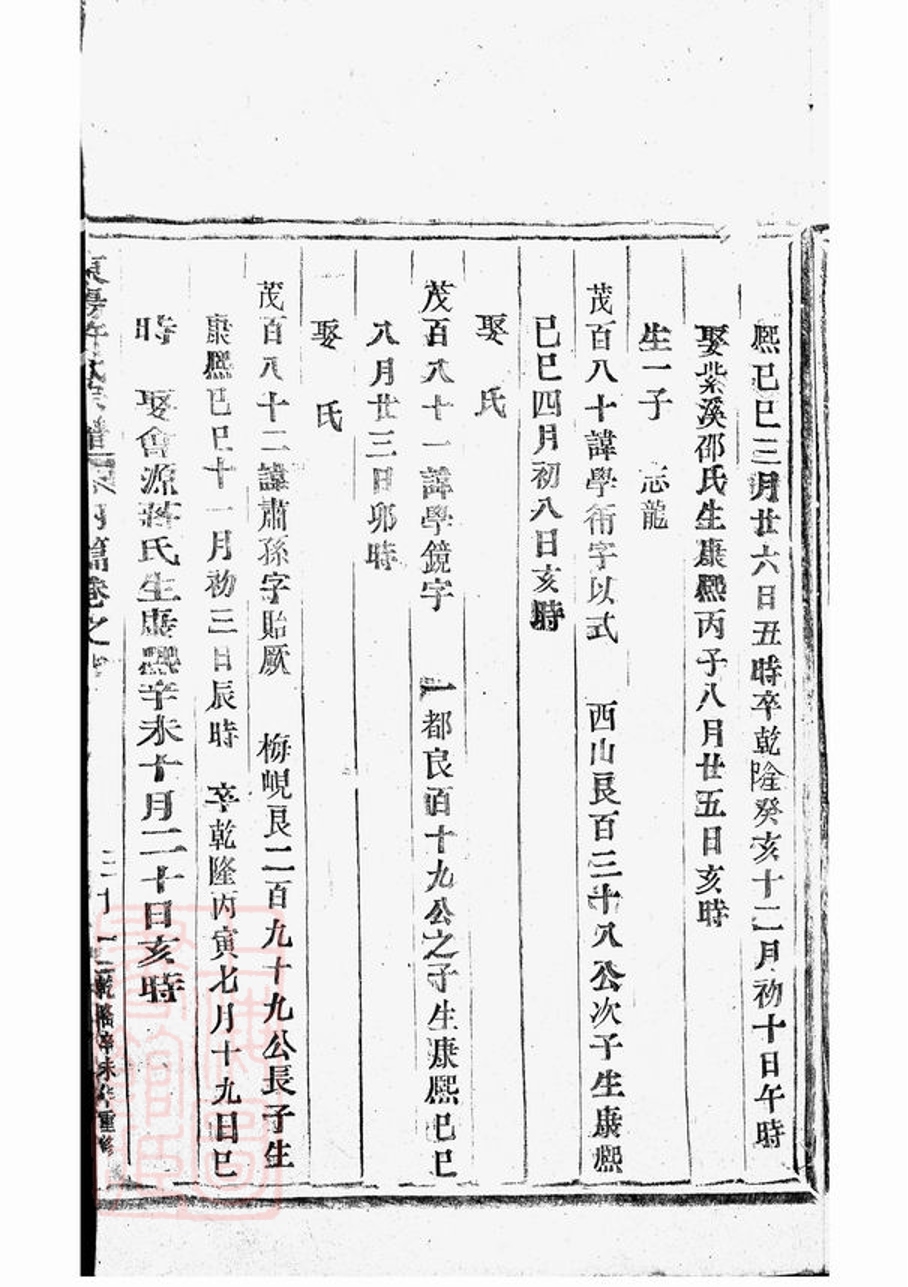 熙己巳三月廿六日丑時卒乾隆癸亥十二月初十日午時
娶紫溪邵氏生康熙丙子八月廿五日亥時
生一子 志龍
茂百八十諱學術字以式 西山良百三十八公次子生康熙
己巳四月初八日亥時
娶 氏
茂百八十一諱學鏡字 一都良百十九公之子生康熙己巳
八月廿三日卯時
娶 氏
茂百八十二諱肅孫字貽厥 梅峴良二百九十九公長子生
康熙己巳十一月初三日辰時 卒乾隆丙寅七月十九日巳
時 娶會源蔣氏生康熙辛未十月二十日亥時
篇卷之
乾隆辛未年重修